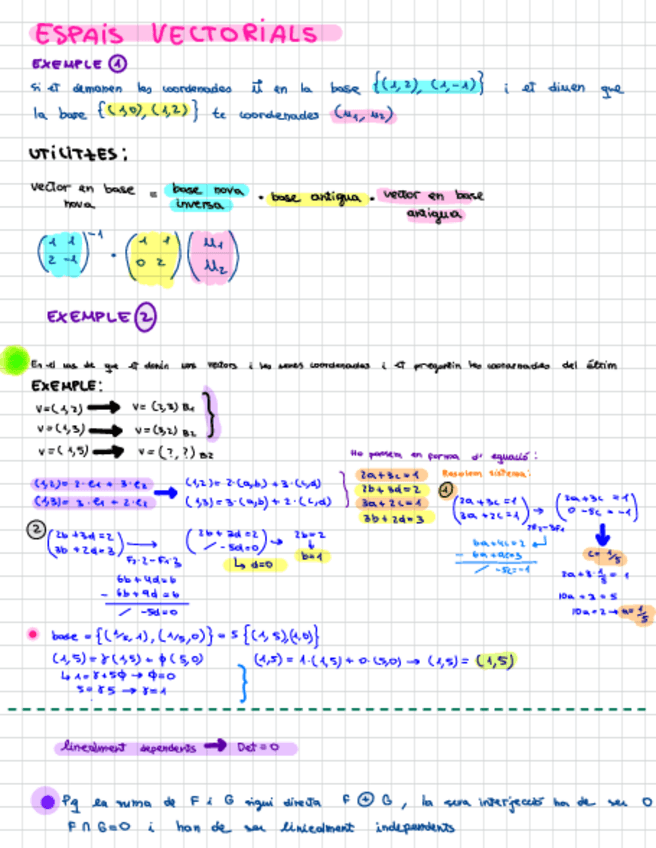 ESPAIS VECTORIALS
EXEMPLE 1
Si et demanen les coordenades ū en la base {(1,2), (1,-1)} i et diuen que
la base {(1,0), (1,2)} te coordenades (μ1, μ2)
UTILITZES:
vector en base nova = base nova inversa · base antigua · vector en base antigua
(1 1)⁻¹ · (1 1) (μ1)
(2 -1) (0 2) (μ2)
EXEMPLE 2
En el cas de que et donin uns vectors i les seves coordenades i et preguntin les coordenades del últim
EXEMPLE:
V=(1,2) → V=(2,3) B1
V=(1,3) → V=(3,2) B2
V=(1,5) → V=(?,?) B2
Ho posem en forma d'equació:
(1,2)=2·e1+3·e2 → (1,2)=2·(a,b)+3·(c,d)
(1,3)=3·e1+2·e2 (1,3)=3·(a,b)+2·(c,d)
2a+3c=1
2b+3d=2
3a+2c=1
3b+2d=3
Resolem sistema:
1
(2a+3c=1) → (2a+3c=1)
(3a+2c=1) (0-5c=-1)
2F2-3F1
6a+4c=2
- 6a+9c=3
/ -5c=-1
c=1/5
2a+3·1/5=1
10a+3=5
10a=2 → a=1/5
2
(2b+3d=2) → (2b+3d=2) → 2b=2
(3b+2d=3) ( / -5d=0) b=1
F2·2-F1·3
d=0
6b+4d=6
- 6b+9d=6
/ -5d=0
base = {(1/5,1), (1/5,0)} = 5{(1,5),(1,0)}
(1,5)=γ(1,5)+ϕ(5,0)
↳ 1=γ+5ϕ → ϕ=0
5=γ5 → γ=1
(1,5)=1·(1,5)+0·(5,0) → (1,5)=(1,5)
linealment dependents → Det=0
Pq la suma de F i G sigui directa F ⊕ G, la seva interjecció ha de ser 0
F ∩ G=0 i han de ser linealment independents